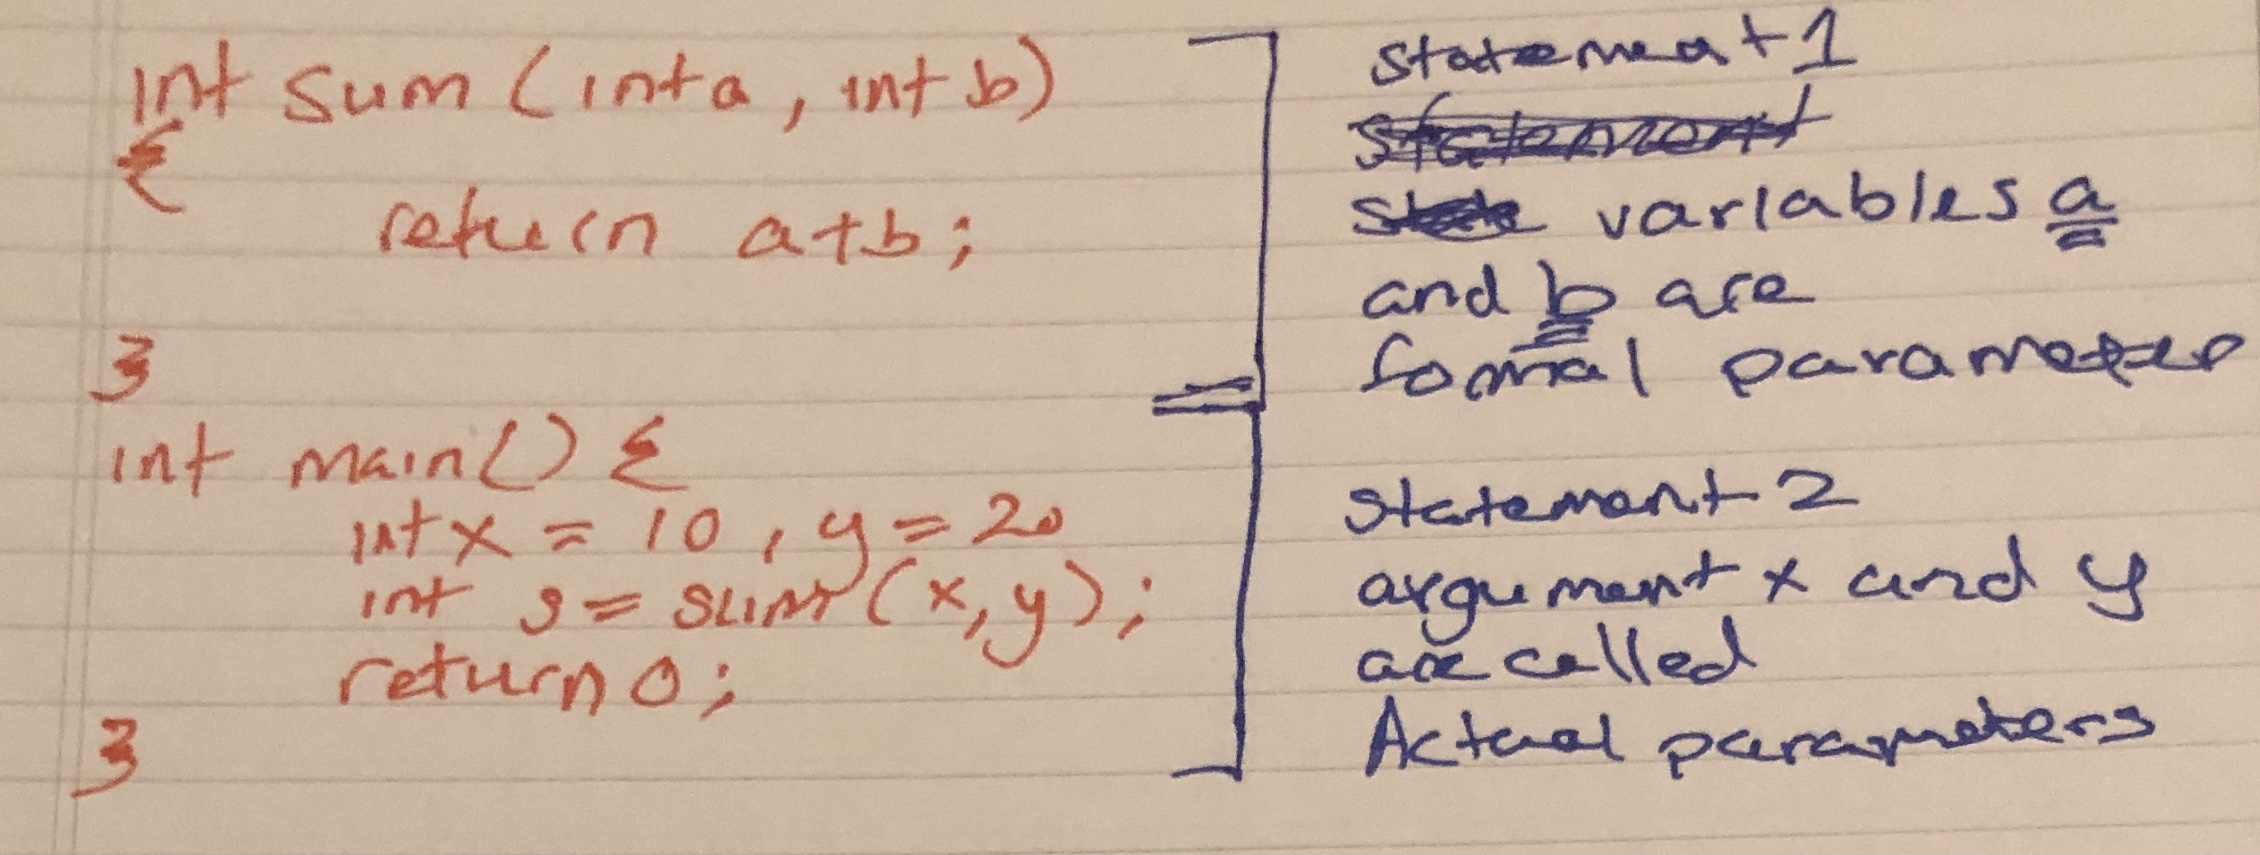 int sum (int a, int b)
{
return a+b;
}
int main() {
int x = 10, y = 20
int s = sum (x, y);
return 0;
}
statement 1
variables a
and b are
formal parameter
statement 2
argument x and y
are called
Actual parameters